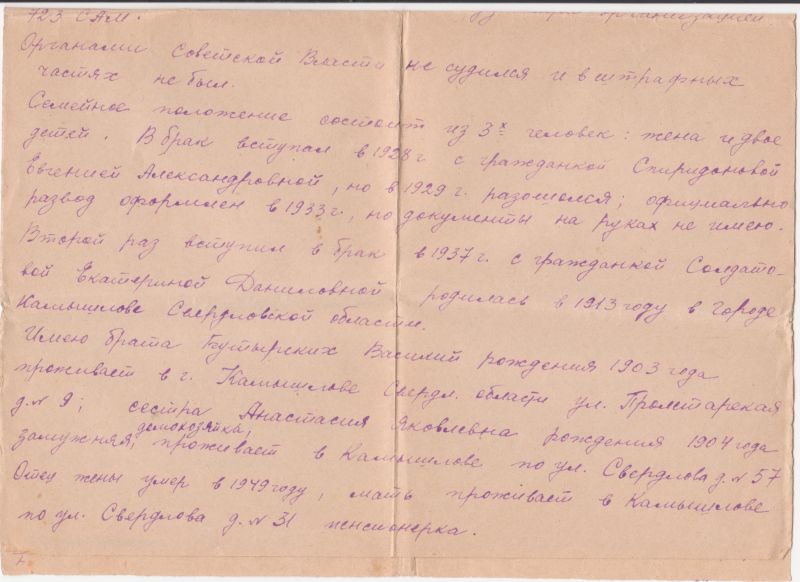 723 САМ. организацией
Органами Советской Власти не судился и в штрафных
частях не был.
Семейное положение состоит из 3х человек: жена и двое
детей. В брак вступал в 1928 г с гражданкой Спиридоновой
Евгенией Александровной, но в 1929 г. разошолся; официально
развод оформлен в 1933 г., но документы на руках не имею.
Второй раз вступил в брак в 1937 г. с гражданкой Солдато-
вой Екатериной Даниловной родилась в 1913 году в городе
Камышлове Свердловской области.
Имею брата Кутырских Василий рождения 1903 года
проживает в г. Камышлове Свердл. области ул. Пролетарская
д. № 9; сестра Анастасия Яковлевна рождения 1904 года
домохозяйка,
замужняя, проживает в Камышлове по ул. Свердлова д. № 57
Отец жены умер в 1949 году, мать проживает в Камышлове
по ул. Свердлова д. № 31 пенсионерка.